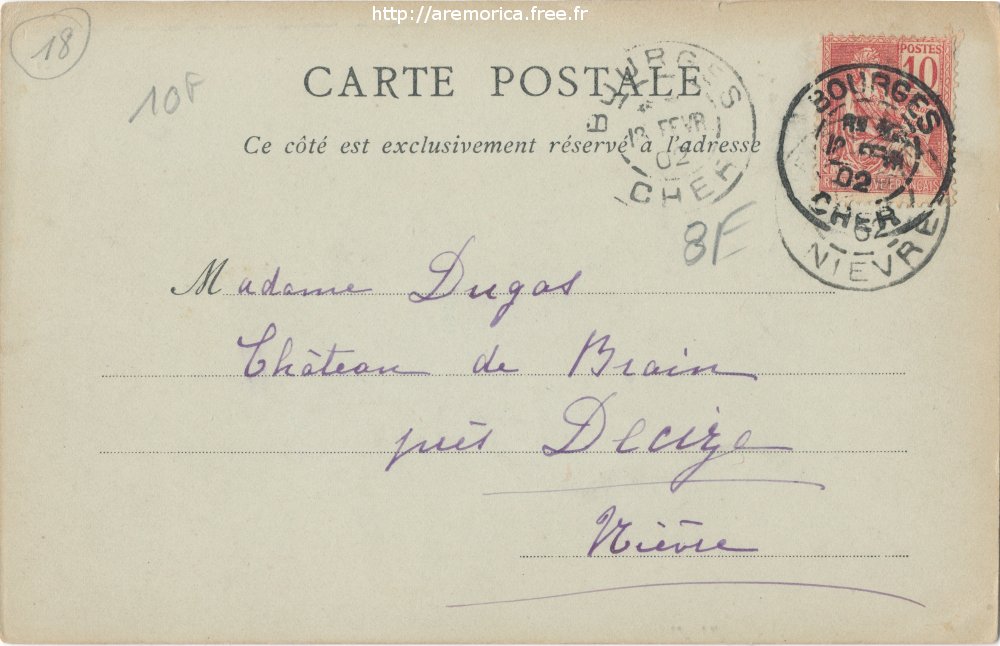 http://aremorica.free.fr
18
10F
CARTE POSTALE
Ce côté est exclusivement réservé à l'adresse
BOURGES
13 FEVR
02
CHER
POSTES
10
BOURGES
13 FEVR
02
CHER
02
NIEVRE
8F
Madame Dugas
Château de Brain
près Decize
Nièvre